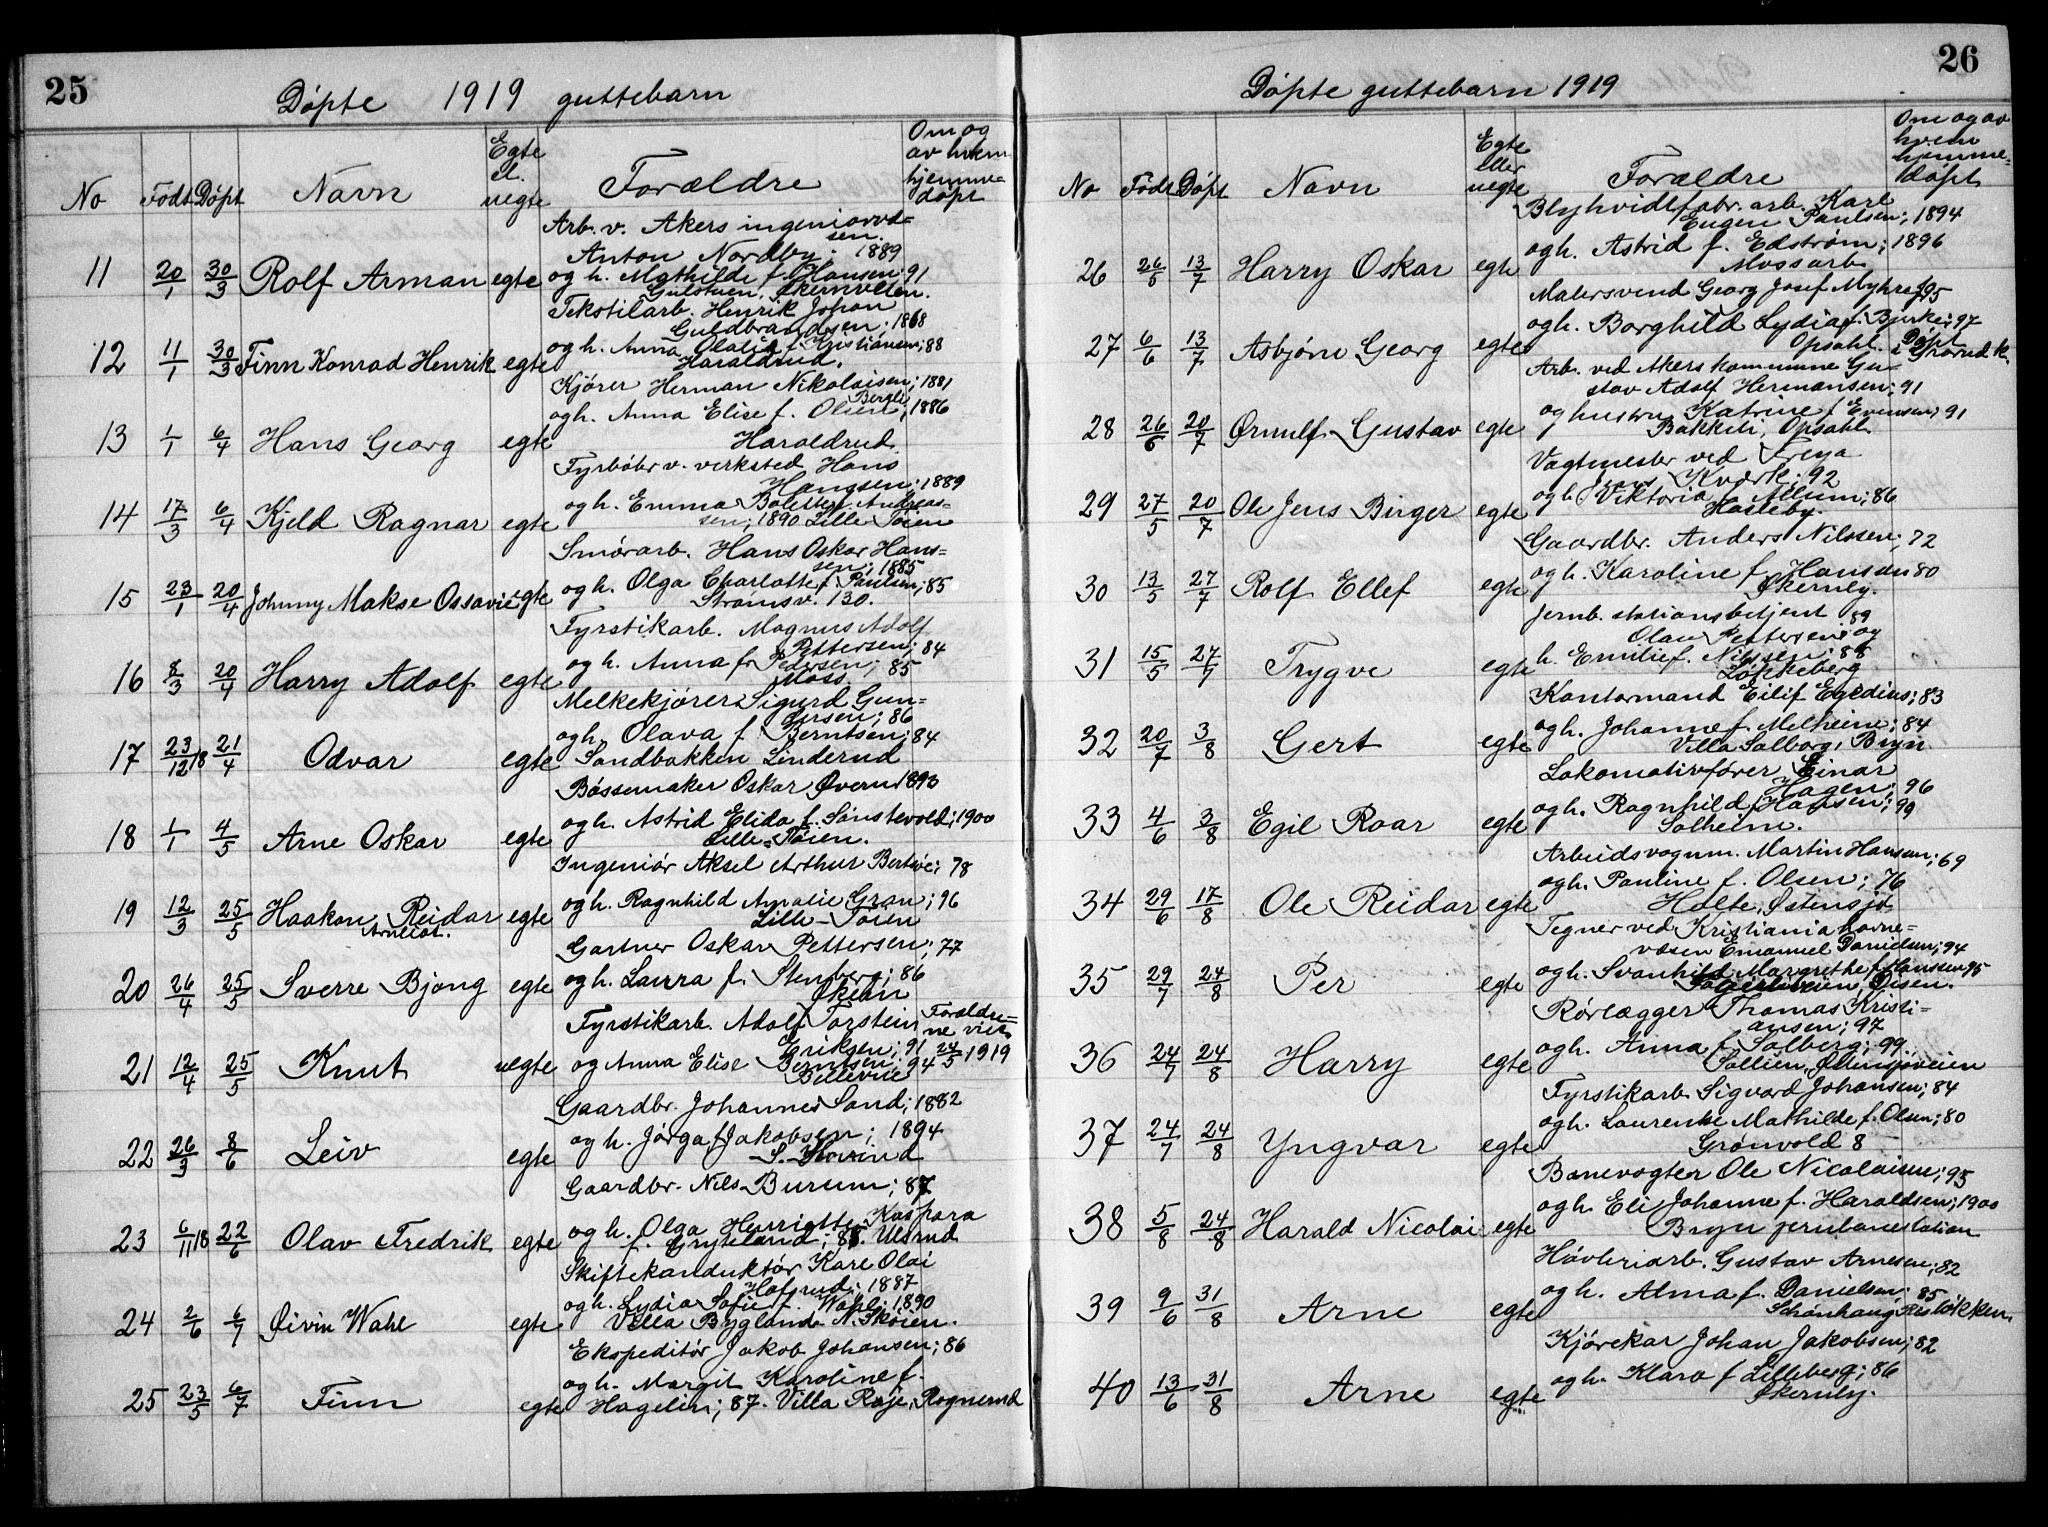 25
Døpte 1919 guttebarn
No Født Døpt Navn Egte el. uegte Forældre Om og av hvem hjemme-døpt
Arb. v. Akers ingeniørvæ-
sen.
Anton Nordby; 1889
11 20/1 30/3 Rolf Arman egte og h. Mathilde f. Hansen 91
Gulstuen, Økernveien.
Tekstilarb. Henrik Johan
Guldbrandsen; 1868
12 11/1 30/3 Finn Konrad Henrik egte og h. Anna Olatia f. Kristiansen; 88
Haraldrud.
Kjører Herman Nikolaisen; 1881
Bergli
og h. Anna Elise f. Olsen; 1886
13 1/1 6/4 Hans Georg egte Haraldrud
Fyrbøter v. verksted Hans
Hansen; 1889
14 17/3 6/4 Kjeld Ragnar egte og h. Emma Bolette f. Andreas-
sen; 1890 Lille Tøien
Smørarb. Hans Oskar Hans-
sen; 1885
15 23/1 20/4 Johnny Makse Ossavie egte og h. Olga Charlotte f. Paulsen; 85
Strømsv. 130.
Fyrstikarb. Magnus Adolf
Pettersen; 84
16 8/3 20/4 Harry Adolf egte og h. Anna f. Pedersen; 85
Moss
Melkekjører Sigurd Gun-
dersen; 86
og h. Olava f. Berntsen; 84
17 23/12 18 21/4 Odvar egte Sandbakken Linderud
Bøssemaker Oskar Øvern 1893
18 1/1 4/5 Arne Oskar egte og h. Astrid Elida f. Sønstevold; 1900
Lille-Tøien.
Ingeniør Aksel Arthur; 78
19 12/3 25/5 Haakon Reidar egte og h. Ragnhild Amalie Gran; 96
Arnliot. Lille-Tøien
Gartner Oskar Pettersen; 77
20 26/4 25/5 Sverre Bjong egte og h. Laura f. Stenberg; 86
Økern
Fyrstikarb. Adolf Torstein Forældre-
Eriksen; 91 ne viet
21 12/4 25/5 Knut uegte og Anna Elise Berntsen; 94 24/5 1919
Bellevue
Gaardbr. Johannes Sand; 1882
22 26/3 8/6 Leiv egte og h. Jørga f. Jakobsen; 1894
Gaardbr. Nils Burum; 87
23 6/11 18 22/6 Olav Fredrik egte og h. Olga Henriette Kaspara
Skiftekonduktør Karl Olai
Hofsrud; 1887
24 2/6 6/7 Øivin Wahl egte og h. Lydia Sofie f. Wahl; 1890
Villa Bygland N. Skøien.
Ekspeditør Jakob Johansen; 86
25 23/5 6/7 Finn egte og h. Margit Karoline f.
Hagelin; 87. Villa Røje, Rognerud
26
Døpte guttebarn 1919
No Født Døpt Navn Egte eller uegte Forældre Om og av hvem hjemme-døpt
Blyhvidtfabr. arb. Karl
Eugen Paulsen; 1894
26 26/5 13/7 Harry Oskar egte og h. Astrid f. Edstrøm; 1896
Malersvend Georg Josef Myhre; 95
27 6/6 13/7 Asbjørn Georg egte og h. Borghild Lydia f. Bjerke; 97
Opsahl. Døpt i Grorud k.
Arb. ved Akers kommune Gu-
stav Adolf Hermansen; 91
28 26/6 20/7 Ørnulf Gustav egte og hustru Katrine f. Evensen; 91
Bakkeli, Opsahl.
Vagtmester ved Freya
Jens Kværk; 92
29 27/5 20/7 Ole Jens Birger egte og h. Viktoria f. Allum; 86
Hasleby.
Gaardbr. Anders Nilssen; 72
30 13/5 27/7 Rolf Ellef egte og h. Karoline f. Hansen 80
Økernby.
Jernb. stationsbetjent
Olav Pettersen; 89 og
31 15/5 27/7 Trygve egte h. Emilie f. Nilssen; 88
Løkkeberg
Kontormand Eilif Egedius; 83
32 20/7 3/8 Gert egte og h. Johanne f. Melheim; 84
Villa Solborg, Bryn
Lokomotivfører Einar
Hagen; 96
33 4/6 3/8 Egil Roar egte og h. Ragnhild f. Hansen; 99
Solheim.
Arbeidsvognm. Martin Hansen; 69
34 29/6 17/8 Ole Reidar egte og h. Pauline f. Olsen; 76
Holte, Østensjø
Tegner ved Kristiania havne-
væsen Emanuel Danielsen; 94
35 29/7 24/8 Per egte og h. Svanhild Margrethe f. Hanssen 95
Rørlægger Thomas Kristi-
ansen; 97
36 24/7 24/8 Harry egte og h. Anna f. Solberg; 99
Sollien, Østensjøveien
Fyrstikarb. Sigvard Johansen; 84
37 24/7 24/8 Yngvar egte og h. Laurense Mathilde f. Olsen; 80
Grønvold 8
Banevogter Ole Nicolaisen; 95
38 5/8 24/8 Harald Nicolai egte og h. Eli Johanne f. Haraldsen; 1900
Bryn jernbanestation
Høvleriarb. Gustav Arnesen; 82
39 9/6 31/8 Arne egte og h. Alma f. Danielsen; 85
Schønhaug
Kjørekar Johan Jakobsen; 82
40 13/6 31/8 Arne egte og h. Klara f. Lilleberg; 86
Økernby.